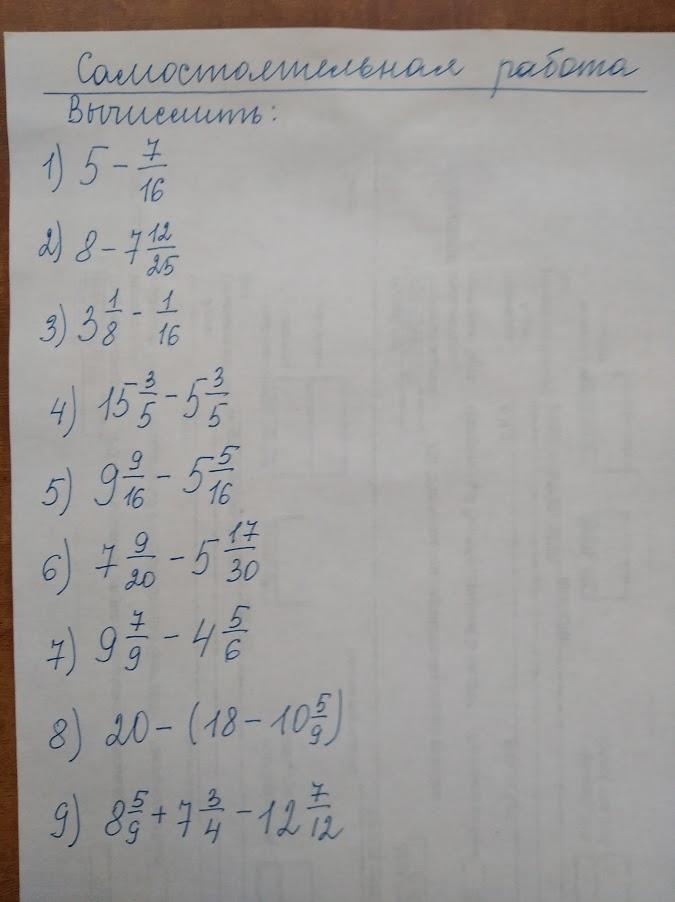 Самостоятельная работа
Вычислить:
1) 5 - 7/16
2) 8 - 7 12/25
3) 3 1/8 - 1/16
4) 15 3/5 - 5 3/5
5) 9 9/16 - 5 5/16
6) 7 9/20 - 5 17/30
7) 9 7/9 - 4 5/6
8) 20 - (18 - 10 5/9)
9) 8 5/9 + 7 3/4 - 12 7/12